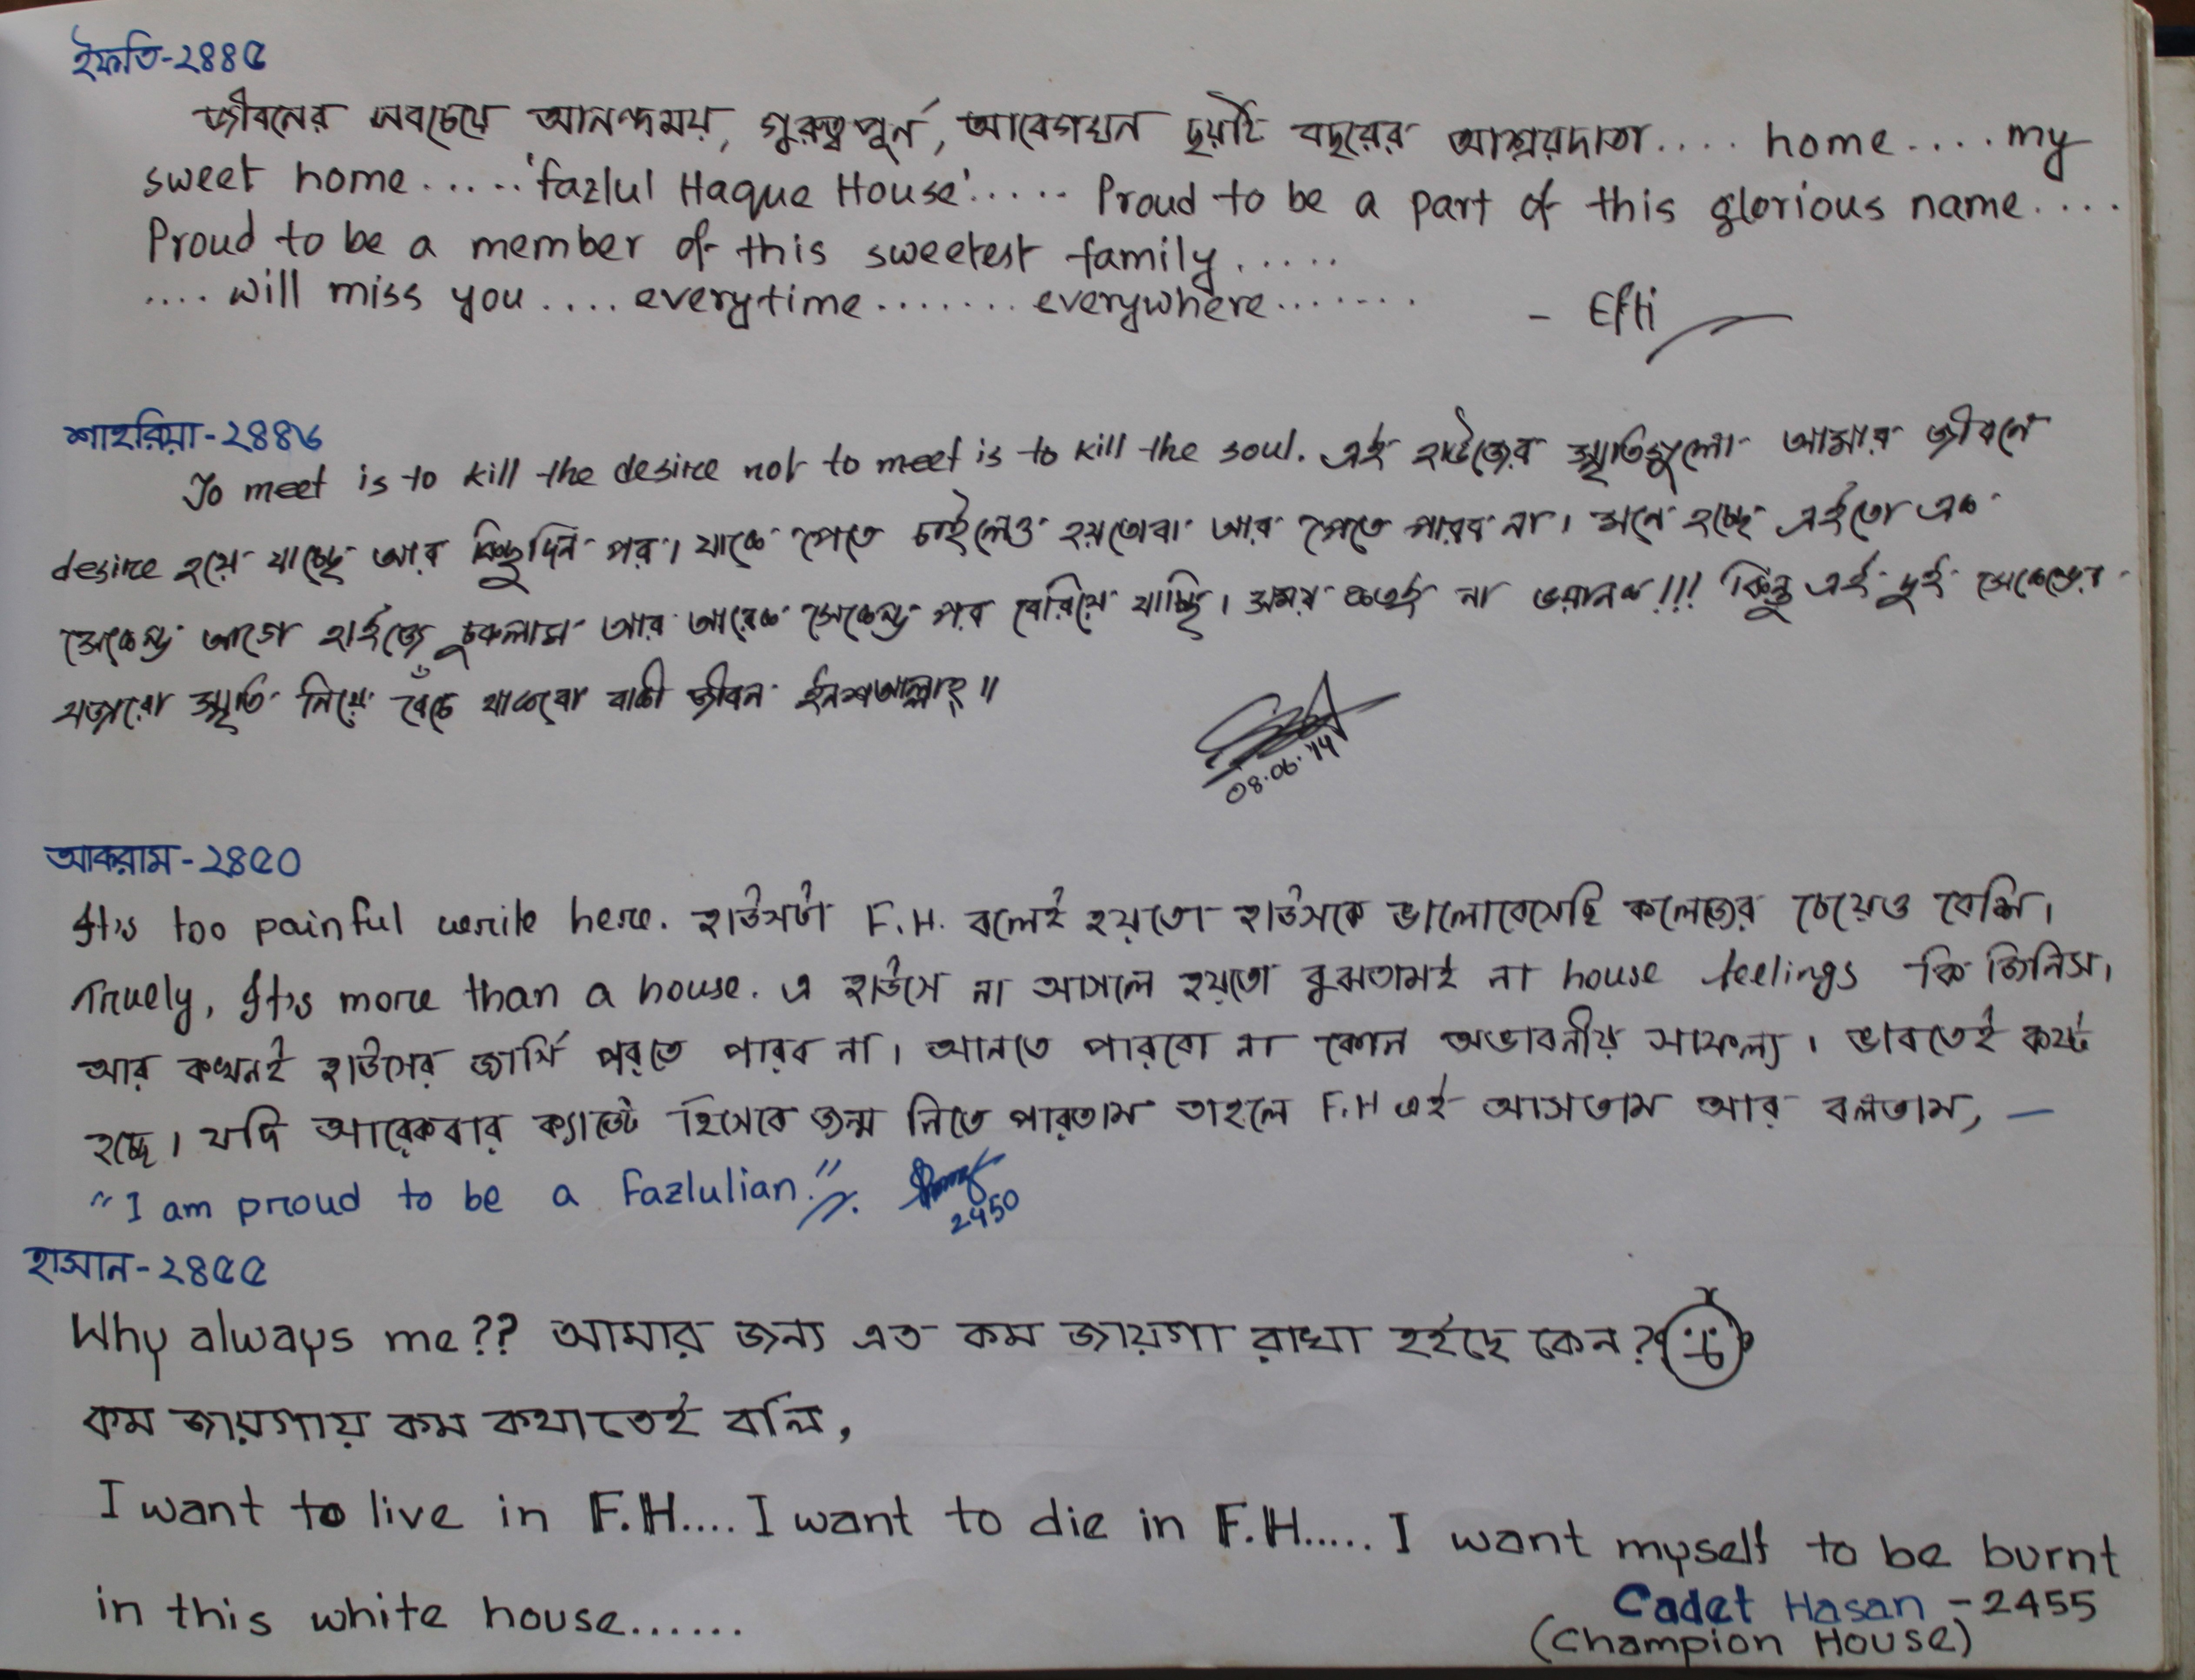 ইফতি-২৪৪৫
জীবনের সবচেয়ে আনন্দময়, গুরুত্বপূর্ন, আবেগঘন ছয়টি বছরের আশ্রয়দাতা..... home.... my
sweet home.....'fazlul Haque House'..... Proud to be a part of this glorious name....
Proud to be a member of this sweetest family.....
.... will miss you.... everytime....... everywhere.......
- Efti
শাহরিয়া-২৪৪৬
To meet is to kill the desire not to meet is to kill the soul. এই হাউজের স্মৃতিগুলো আমার জীবনে
desire হয়ে যাচ্ছে আর কিছুদিন পর। যাকে পেতে চাইলেও হয়তোবা আর পেতে পারব না। মনে হচ্ছে এইতো এক
সেকেন্ড আগে হাউজে ঢুকলাম আর আরেক সেকেন্ড পর বেরিয়ে যাচ্ছি। সময় কতই না ভয়ানক!!! কিন্তু এই দুই সেকেন্ডের
হাজারো স্মৃতি নিয়ে বেঁচে থাকবো বাকী জীবন ইনশআল্লাহ্॥
08.06.'14
আকরাম-২৪৫০
It's too painful write here. হাউসটা F.H. বলেই হয়তো হাউসকে ভালোবেসেছি কলেজের চেয়েও বেশি।
Truely, It's more than a house. এ হাউসে না আসলে হয়তো বুঝতামই না house feelings কি জিনিস।
আর কখনই হাউসের জার্সি পরতে পারব না। আনতে পারবো না কোন অভাবনীয় সাফল্য। ভাবতেই কষ্ট
হচ্ছে। যদি আরেকবার ক্যাডেট হিসেবে জন্ম নিতে পারতাম তাহলে F.H এই আসতাম আর বলতাম, —
"I am proud to be a Fazlulian."
2450
হাসান-২৪৫৫
Why always me?? আমার জন্য এত কম জায়গা রাখা হইছে কেন?
কম জায়গায় কম কথাতেই বলি,
I want to live in F.H.... I want to die in F.H..... I want myself to be burnt
in this white house......
Cadet Hasan - 2455
(Champion House)